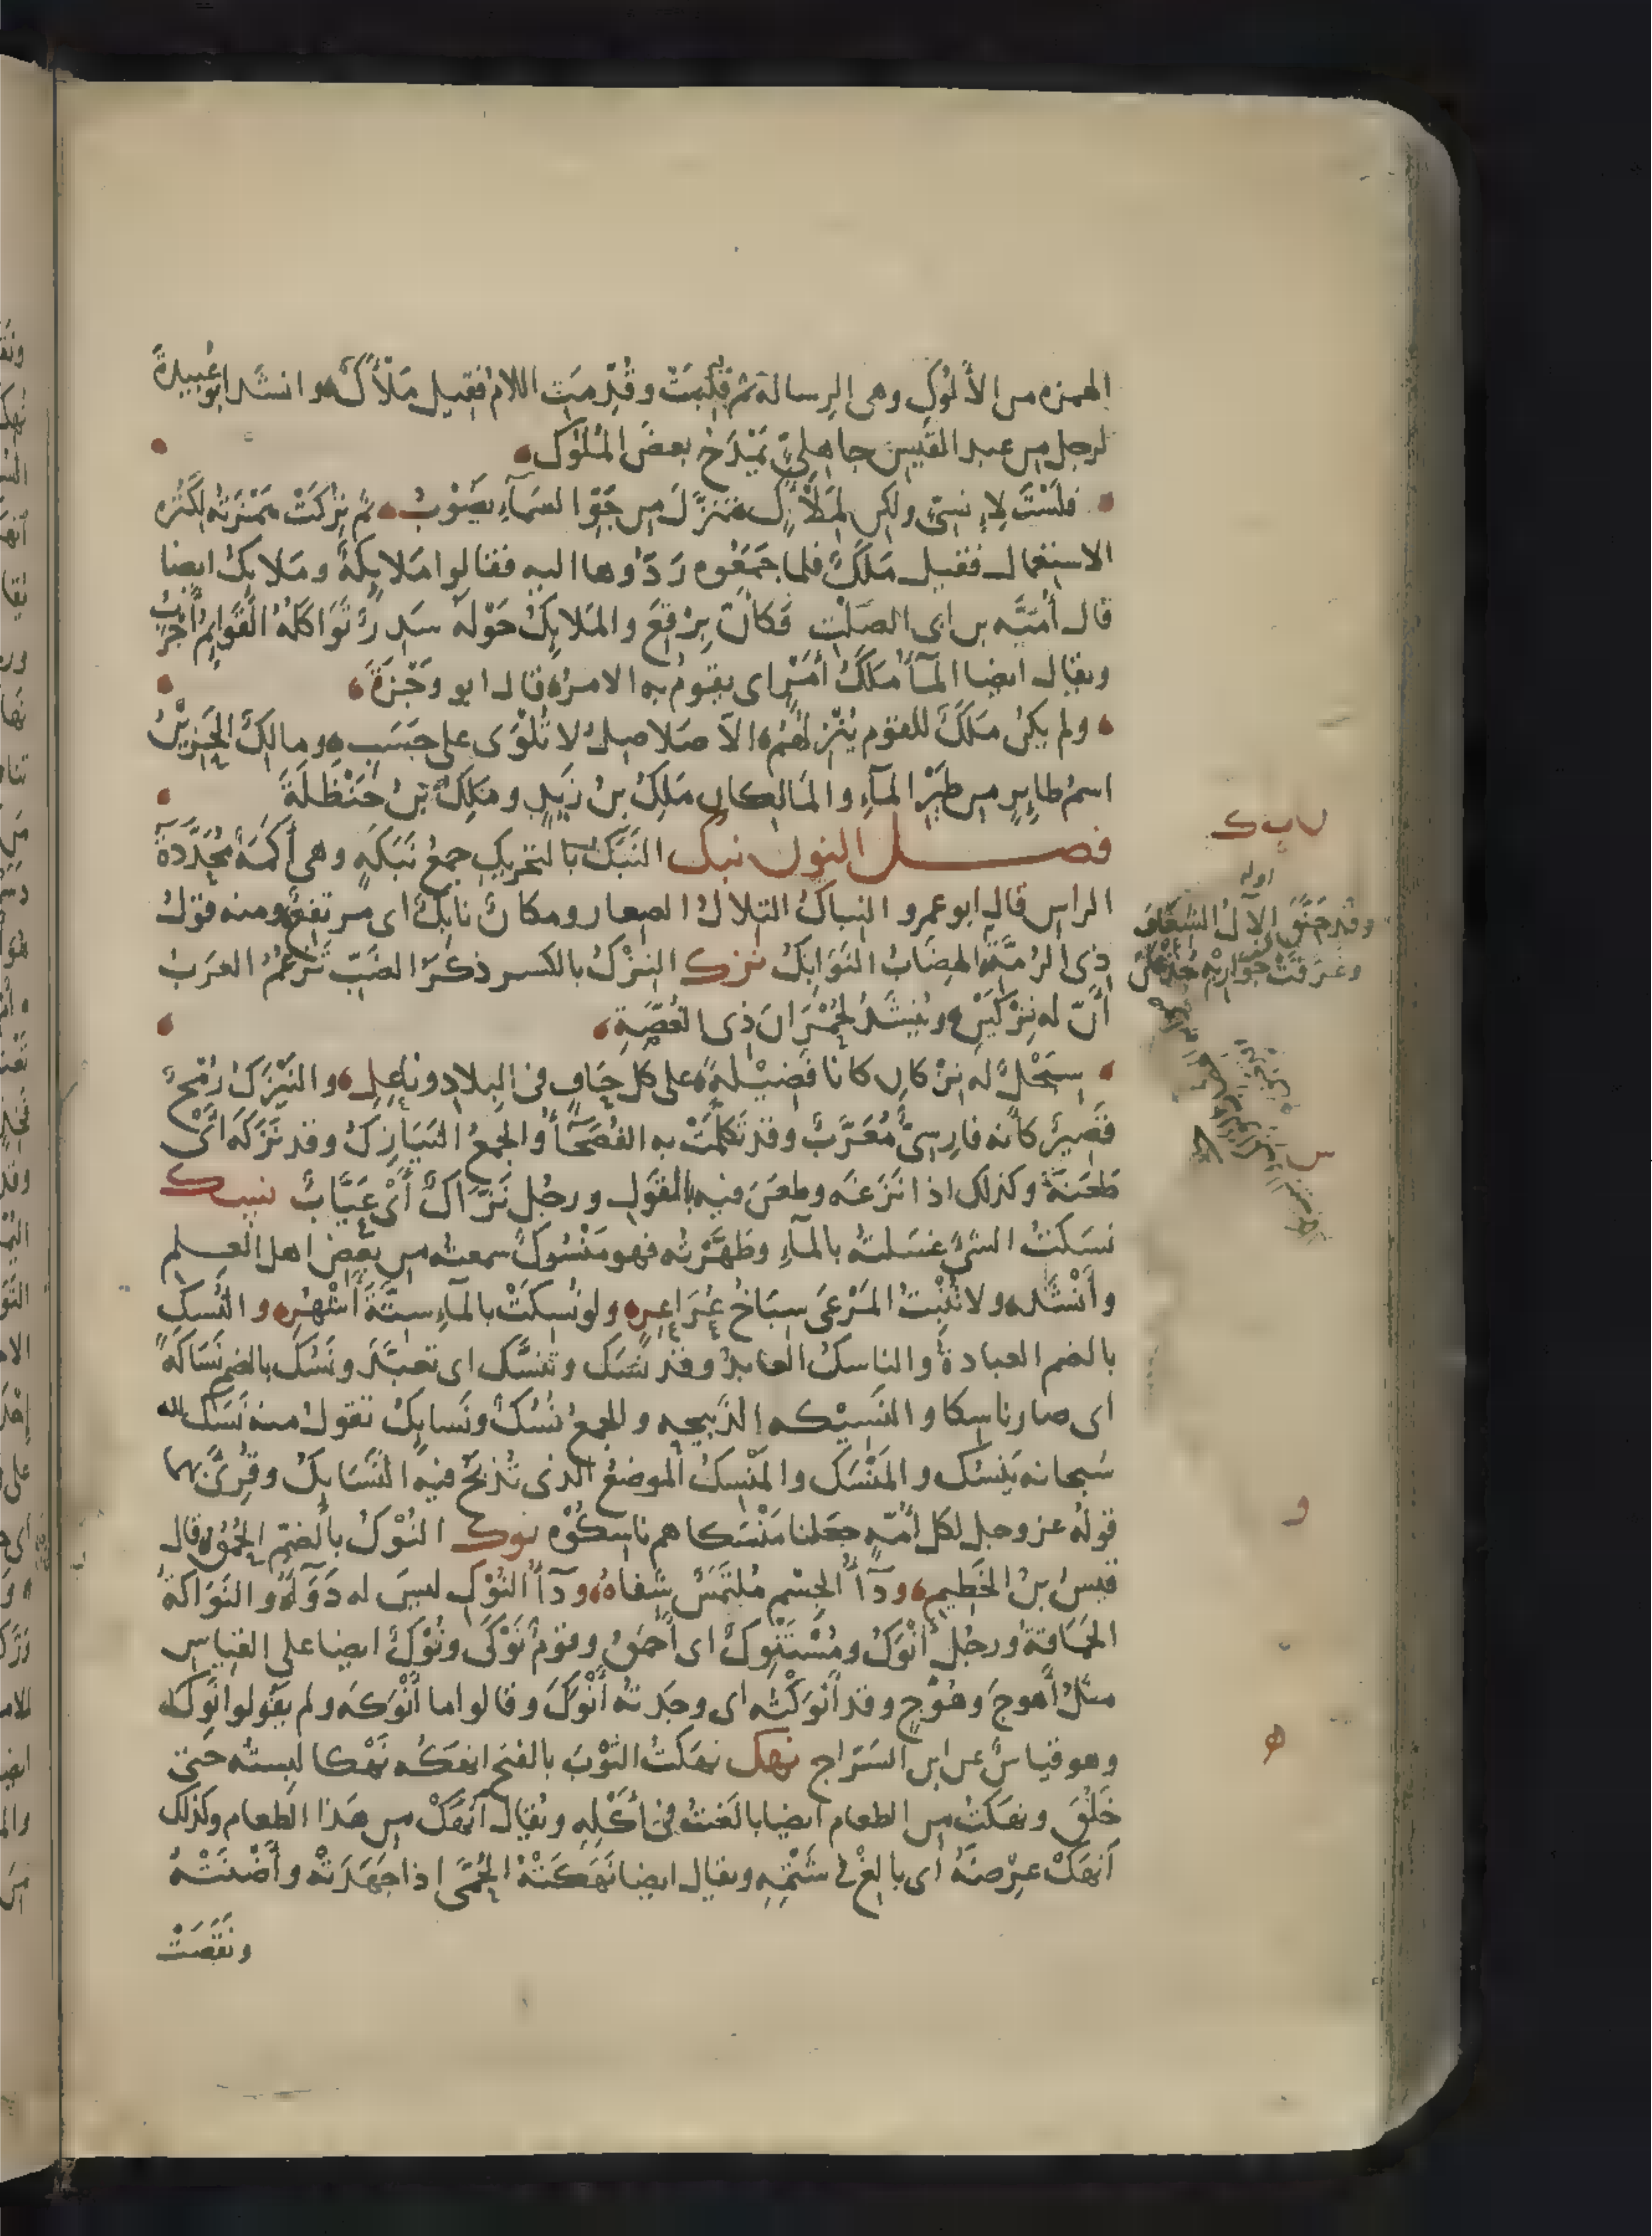 الهمزه من الأَلُوكِ وهى الرِسالة ثم قُلِبَتْ وقُدِّمَتِ اللام فقيل مَلْأَكٌ وانشد ابو عُبيدةَ
لرجل من عبد القَيس جاهليٍّ يَمْدَحُ بعضَ المُلُوك
فلَسْتَ لِإِنسىٍّ ولكن لِمَلْأَكٍ تنزّلَ من جَوّ السمآءِ يَصُوْبُ ثم تُرِكَتْ همْزتُه لِكَثره
الاستعمال فقيل مَلَكٌ فلما جمَعُوه رَدُّوها اليه فقالوا مَلايكةٌ ومَلايكُ ايضا
قال أُمَيَّه بن ابى الصَلْتِ فكأنّ بِرْقِعَ والمَلايكُ حَوْلَه سَدِرٌ تَوَاكَلَهُ القَوَايمُ أجْرَبُ
ويقال ايضا المآءُ مَلَكُ أمْرٍ اى يقومُ به الامرُ قال ابو وَجْزَةَ
ولم يكن مَلَكٌ للقوم يُنْزِلُهُم الّا صَلاصِلُ لا تُلْوَى على حَسَبِ ومالكٌ الحَزِيْنُ
اسمُ طايرٍ من طَيْرِ المآءِ والمَالِكان مَلِكُ بنُ زَيدٍ ومَلِكُ بْنُ حَنْظَلَةَ
فصل النون نبك النَبَكُ بالتحريكِ جمعُ نَبَكَهٍ وهى أكَمَةٌ مُحَدَّدَةُ
الراس قال ابو عمرو النِباكُ التِلالُ الصِغار ومكانٌ نابِكٌ اى مرتفِعٌ ومنه قولُ
ذى الرُمّةِ الهِضَابُ النَوَابِكُ نزك النِزْكُ بالكسر ذكَرُ الضَبّ تَزْعُمُ العرَبُ
أنّ له نِزْكَيْنِ ويُنشَدُ لحُمْرَانَ ذى الغُصّةِ
سِبَحْلٌ له نِزْكانِ كانا فَضِيْلةً على كل حَافٍ فى البِلادِ وناعِلِ والنَيْزَكُ رُمْحٌ
قَصِيرٌ كأنه فارِسىٌّ مُعَرَّبٌ وقد تكلّمَتْ به الفُصَحَآءُ والجمعُ النَيازِكُ وقد نَزَكَه أىْ
طَعَنَهُ وكذلك اذا نَزَغَه وطعَن فيه بالقول ورجُل نَزّاكٌ أىْ عَيّابٌ نسك
نسَكْتُ الشىءَ غسَلتُه بالمآءِ وطَهّرْتُه فهو مَنْسُوكٌ سمعتُه من بعض اهل العلم
وأَنْشَد ولا تُنْبِتُ المَرْعَى سِبَاخُ عُرَاعِرٍ ولو نُسِكَتْ بالمآءِ ستّةَ أشْهُرِ والنُسكُ
بالضم العبادةُ والناسكُ العابدُ وقد نَسَك وتنسّك اى تعبّدَ ونَسُكَ بالضم نَسَاكَةً
اى صار ناسكا والنَسِيْكه الذّبيحه والجمعُ نُسُكٌ ونَسايكُ تقول منه نَسَك لله
سُبحانه يَنسُك والمَنْسَك والمَنْسِكُ الموضعُ الذى تُذبَحُ فيه النَسَايكُ وقُرِئَ بهما
قولُه عز وجل لكل أُمّةٍ جعلنا مَنْسَكا هم ناسكُوْه نوك النُوْكُ بالضمّ الحُمْقُ قال
قيسُ بنُ الخَطيم ودآءُ الجسْم مُلتَمَسٌ شفاهُ ودآءُ النُوْكِ ليسَ له دَوَآءُ والنَوَاكةُ
الحَمَاقةُ ورجُلٌ أنْوَكُ ومُسْتَنْوِكٌ اى أحمَقُ وقومٌ نَوْكَى ونُوْكٌ ايضا على القياس
مثلُ أهوجَ وهُوْجٍ وقد أنْوَكْتُه اى وجَدتُه أنْوَكَ وقالوا ما أنْوَكَه ولم يقولوا أنوِك به
وهو قياسٌ عن ابن السَرّاج نهك نهَكتُ الثوْبَ بالفتح انهَكُه نَهْكا لَبِستُه حتى
خَلُقَ ونهَكتُ من الطعام ايضا بالَغتُ فى أكْلِه ويُقال انهَكْ من هَذا الطعام وكذلك
اَنهَكْ عِرْضَهُ اى بالِغْ فى شَتْمِه ويقال ايضا نَهَكَتْهُ الحُمّى اذا جَهَدَتْه وأَضْنَتْهُ
ونَقَصَتْ
ن ب ك
اوله
وقد خَنّقَ الآلُ الشعَافَ
وغرّقَتْ جَوَارِيْهِ جُذْعَانَ
س
و
ه